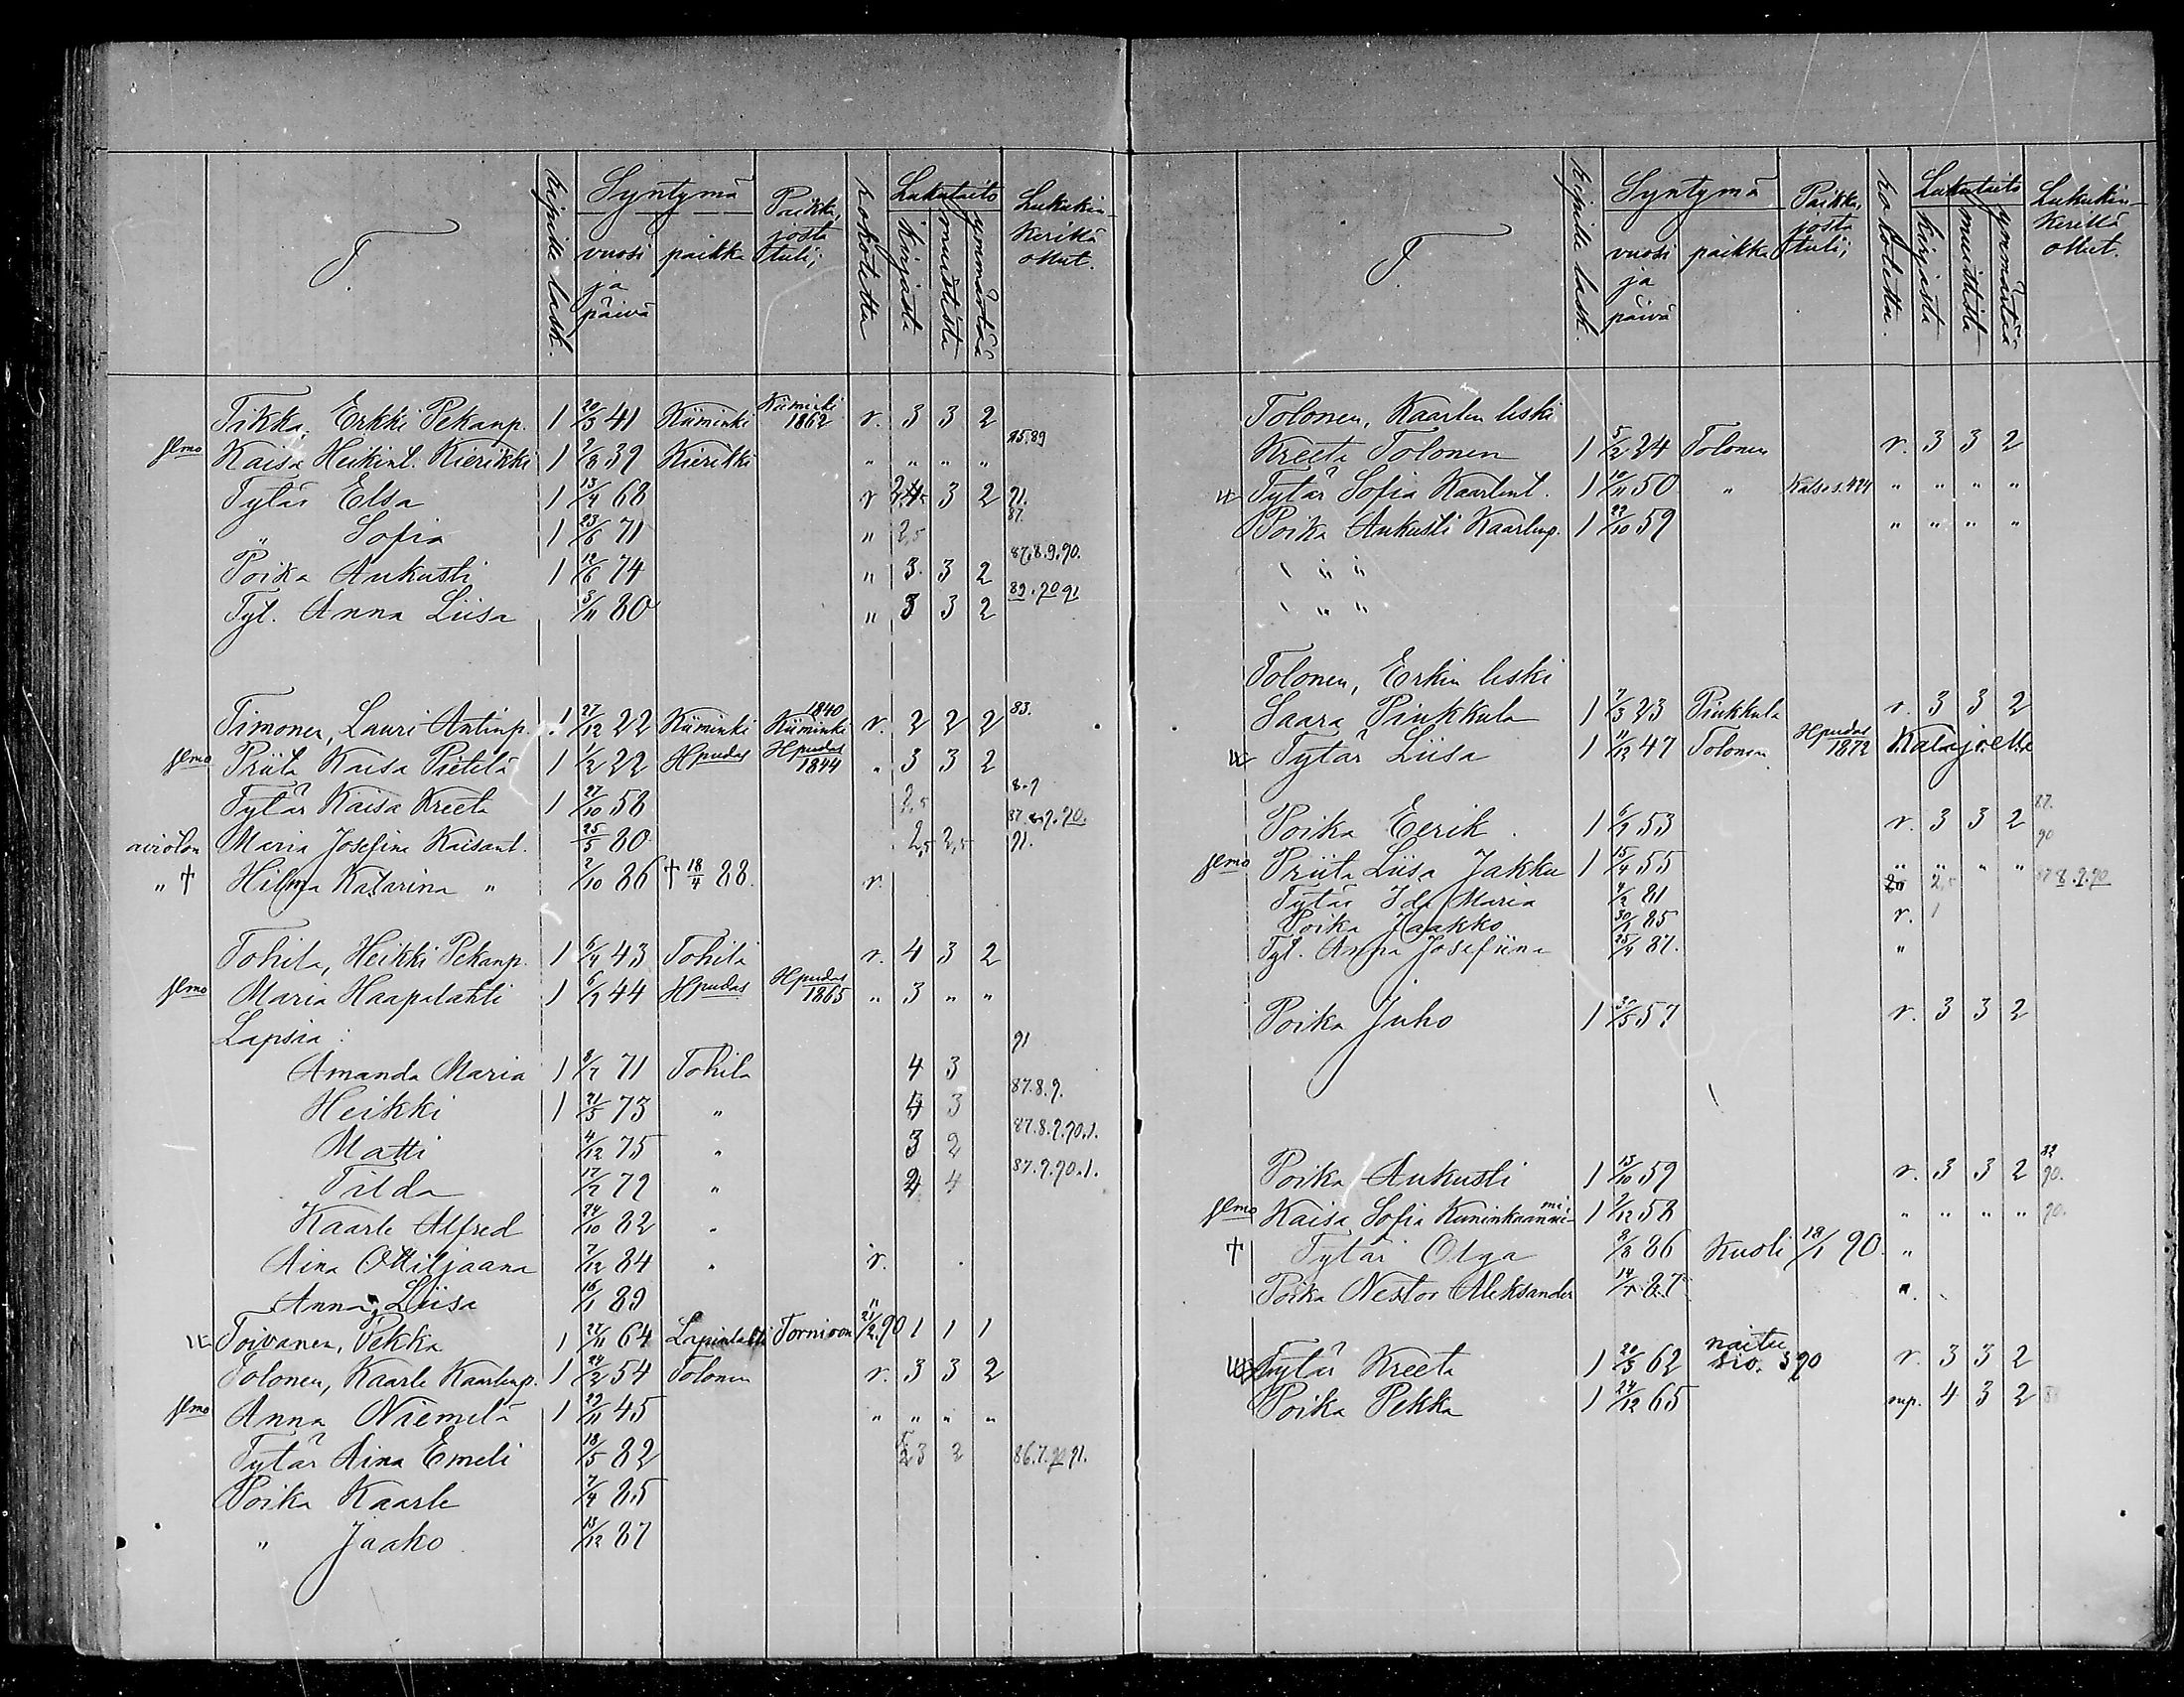 T.
ripille lask.
Syntymä
vuosi ja päivä
paikka
Paikka, josta tuli;
rokotettu
Lukutaito
kirjasta
muistista
ymmärtää
Lukukinkerillä ollut.
Tikka, Erkki Pekanp. 1 20/3 41 Kiiminki Kiiminki 1862 r. 3 3 2
Kaisa Heikint. Kierikki 1 2/8 39 Kierikki " " " " 85.89
Tytär Elsa 1 13/4 68 r 3 2 91.
" Sofia 1 23/6 71 " 2,5 87.
Poika Aukusti 1 12/6 74 " 3 3 2 87.8.9.90.
Tyt. Anna Liisa 3/11 80 " 3 3 2 89.90 91
Timonen, Lauri Antinp. 1 27/12 22 Kiiminki 1840 Kiiminki r. 2 2 2 83.
Priita Kaisa Pietilä 1 1/2 22 Hpudas Hpudas 1844 " 3 3 2
Tytär Kaisa Kreeta 1 27/10 58 2,5 8.9
avioton Maria Josefina Kaisant. 25/5 80 2,5 2,5 91.
" † Hilma Katarina " 2/10 86 † 18/4 88. r.
Tohila, Heikki Pekanp. 1 6/4 43 Tohila r. 4 3 2
Maria Haapalahti 1 6/7 44 Hpudas Hpudas 1865 " 3 " "
Lapsia:
Amanda Maria 1 8/7 71 Tohila 4 3 91
Heikki 1 21/5 73 " 4 3 87.8.9.
Matti 4/12 75 " 3 2 87.8.9.90.1.
Tilda 17/7 79 " 4 4 87.9.90.1.
Kaarle Alfred 24/10 82 "
Aina Ottiljaana 7/12 84 " r.
Anna Liisa 16/1 89 "
Toivanen, Pekka 1 27/11 64 Lapinlahti Tornioon 21/2.90 1 1 1
Tolonen, Kaarle Kaarlenp. 1 24/2 54 Tolonen r. 3 3 2
Anna Niemelä 1 29/11 45 " " " "
Tytär Aina Emeli 18/5 82 3 2 86.7.90 91.
Poika Kaarle 7/4 85
" Jaako 13/12 87
T.
ripille lask.
Syntymä
vuosi ja päivä
paikka
Paikka, josta tuli;
rokotettu.
Lukutaito
kirjasta
muistista
ymmärtää
Lukukinkerillä ollut.
Tolonen, Kaarlen leski
Kreeta Tolonen 1 5/2 24 Tolonen r. 3 3 2
Tytär Sofia Kaarlent. 1 10/11 50 " Katso s. 424 " " " "
Poika Aukusti Kaarlenp. 1 22/10 59 " " " "
" " "
" " "
Tolonen, Erkin leski
Saara Pinkkula 1 7/3 23 Pinkkula r. 3 3 2
Tytär Liisa 1 11/12 47 Tolonen Hpudas 1872 Kalajoelle
Poika Eerik 1 6/9 53 r. 3 3 2 87. 90
Priita Liisa Jakku 1 15/4 55 " " " "
Tytär Ida Maria 4/2 81 2,5 87 8.9.90
Poika Jaakko 30/1 85 r. 1
Tyt. Anna Josefiina 25/4 87. "
Poika Juho 1 30/5 57 r. 3 3 2
Poika Aukusti 1 13/10 59 r. 3 3 2 90.
Kaisa Sofia 1 2/12 58 " " " " 90.
† Tytär Olga 8/8 86 Kuoli 18/1 90. "
Poika Nestor Aleksander 14/7 87 "
Tytär Kreeta 1 20/3 62 naitu siv. 390 r. 3 3 2
Poika Pekka 1 24/12 65 rup. 4 3 2